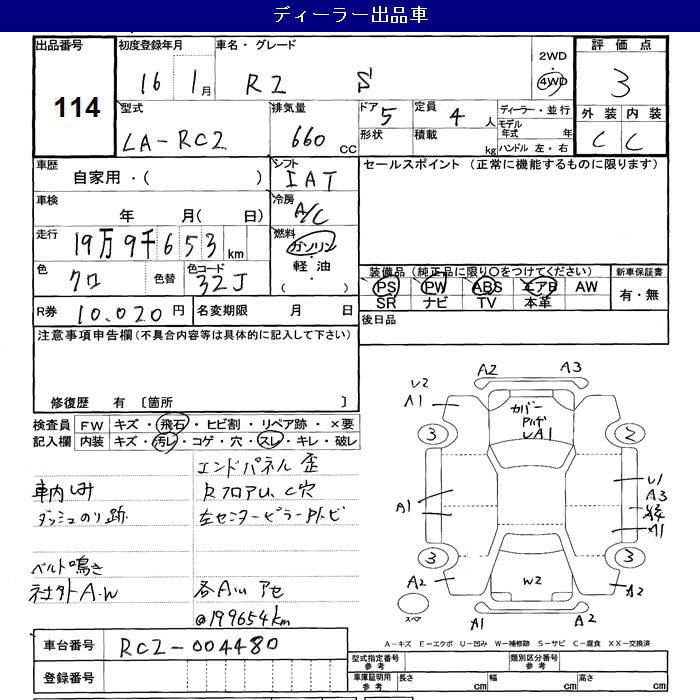 ディーラー出品車
出品番号 初度登録年月 車名・グレード 2WD 評価点
114 16 1月 R2 S 4WD 3
型式 排気量 ドア 5 定員 4 人 ディーラー・並行 外装 内装
LA-RC2 660 CC 形状 積載 kg モデル年式 年 C C
ハンドル 左・右
車歴 シフト セールスポイント (正常に機能するものに限ります)
自家用・( ) IAT
車検 冷房
年 月( 日) A/C
走行 燃料
19万9千653km ガソリン
色 色替 色コード ・軽油・ 装備品(純正品に限り〇をつけてください) 新車保証書
クロ 32J ( ) PS PW ABS エアB AW 有・無
SR ナビ TV 本革
R券 10.020円 名変期限 月 日 後日品
注意事項申告欄(不具合内容等は具体的に記入して下さい)
修復歴 有 〔箇所 〕
検査員 FW キズ・飛石・ヒビ割・リペア跡・×要
記入欄 内装 キズ・汚レ・コゲ・穴・スレ・キレ・破レ
エンドパネル歪
車内しみ RフロアU、C穴
ダッシュのり跡 左センターピラーアトビ
ベルト鳴き
社外A.W 各Au アセ
@199654km
A2 A3
U2
A1
カバー
UA1
3 2
A1
U1
A3
A1
3 3
A2 W2 A2
スペア A1 A2
A-キズ E-エクボ U-凹み W-補修跡 S-サビ C-腐食 XX-交換済
車台番号 RC2-004480
登録番号
型式指定番号 参考 類別区分番号 参考
車庫証明用 参考 長さ cm 幅 cm 高さ cm